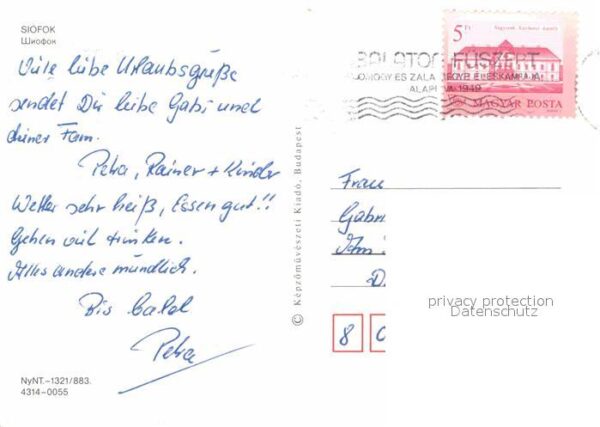 SIÓFOK
Шиофок
Viele liebe Urlaubsgrüße
sendet Dir liebe Gabi und
deiner Fam.
Petra, Rainer + Kinder
Wetter sehr heiß, Essen gut!!
Gehen viel trinken.
Alles andere mündlich.
Bis bald
Petra
NyNT.–1321/883.
4314–0055
© Képzőművészeti Kiadó, Budapest
5 Ft
MAGYAR POSTA
BALATON FŰSZÉRT
SOMOGY ÉS ZALA MEGYE ÉLÉSKAMRÁJA!
1949
Frau
Gabri
8
privacy protection
Datenschutz